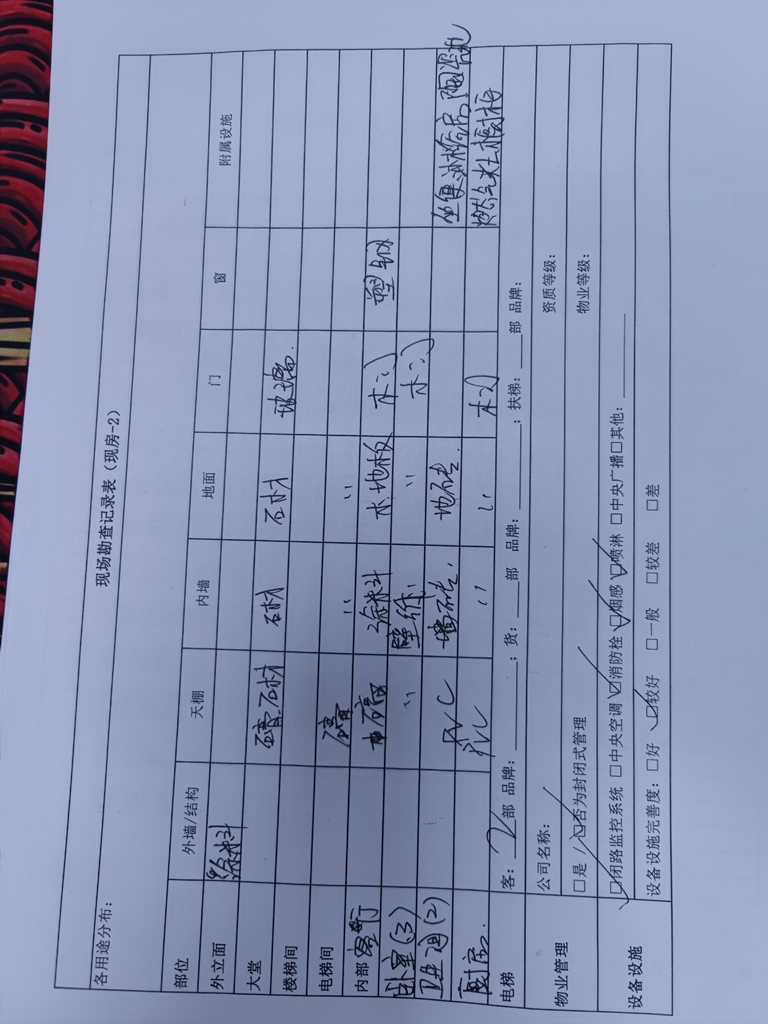 现场勘查记录表（现房-2）
各用途分布：
部位 外墙/结构 天棚 内墙 地面 门 窗 附属设施
外立面 涂料
大堂 石膏石材 石材 石材 玻璃.
楼梯间
电梯间 石膏 〃 〃
内部 客厅 石膏 涂料 木地板 木门 塑钢
卧室(3) 〃 壁纸 〃 木门
卫浴(2) PVC 墙砖 地砖. 坐便
厨房. PVC 〃 〃 木门 燃气灶 橱柜
电梯 客：2部 品牌：____；货：___部 品牌：____；扶梯：___部 品牌：
物业管理 公司名称： 资质等级：
□是 ☑否为封闭式管理 物业等级：
设备设施 ☑闭路监控系统 □中央空调 ☑消防栓 ☑烟感 ☑喷淋 □中央广播 □其他：____
设备设施完善度：□好 ☑较好 □一般 □较差 □差